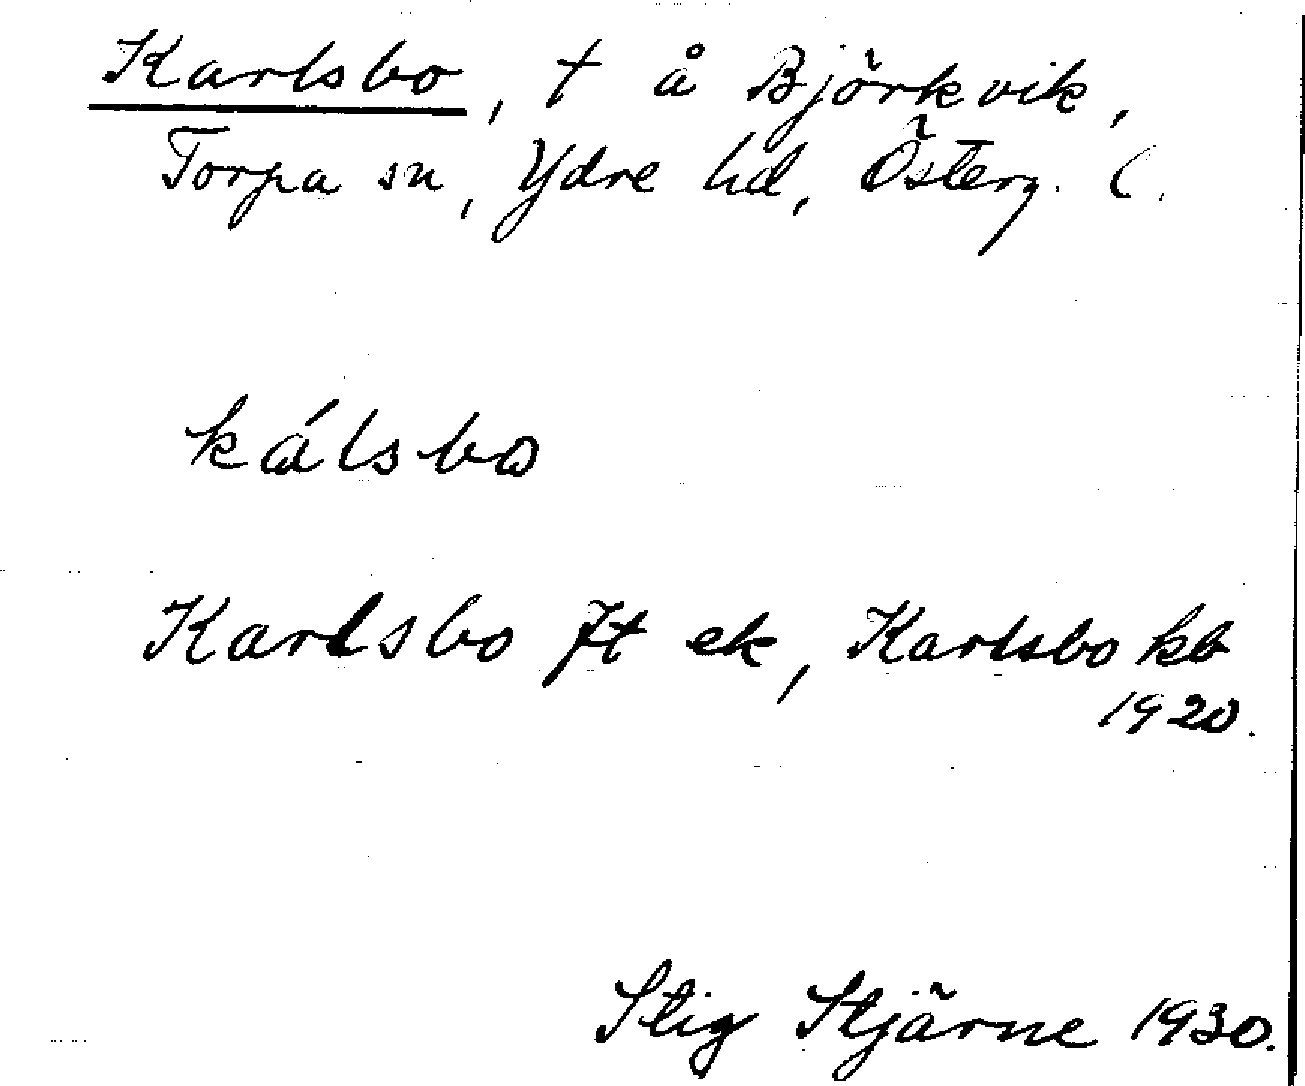 Karlsbo, t å Björkvik,
Torpa sn, Ydre hd, Österg. l.
kálsbo
Karlsbo Jt ek, Karlsbo kb
1920.
Stig Stjärne 1930.